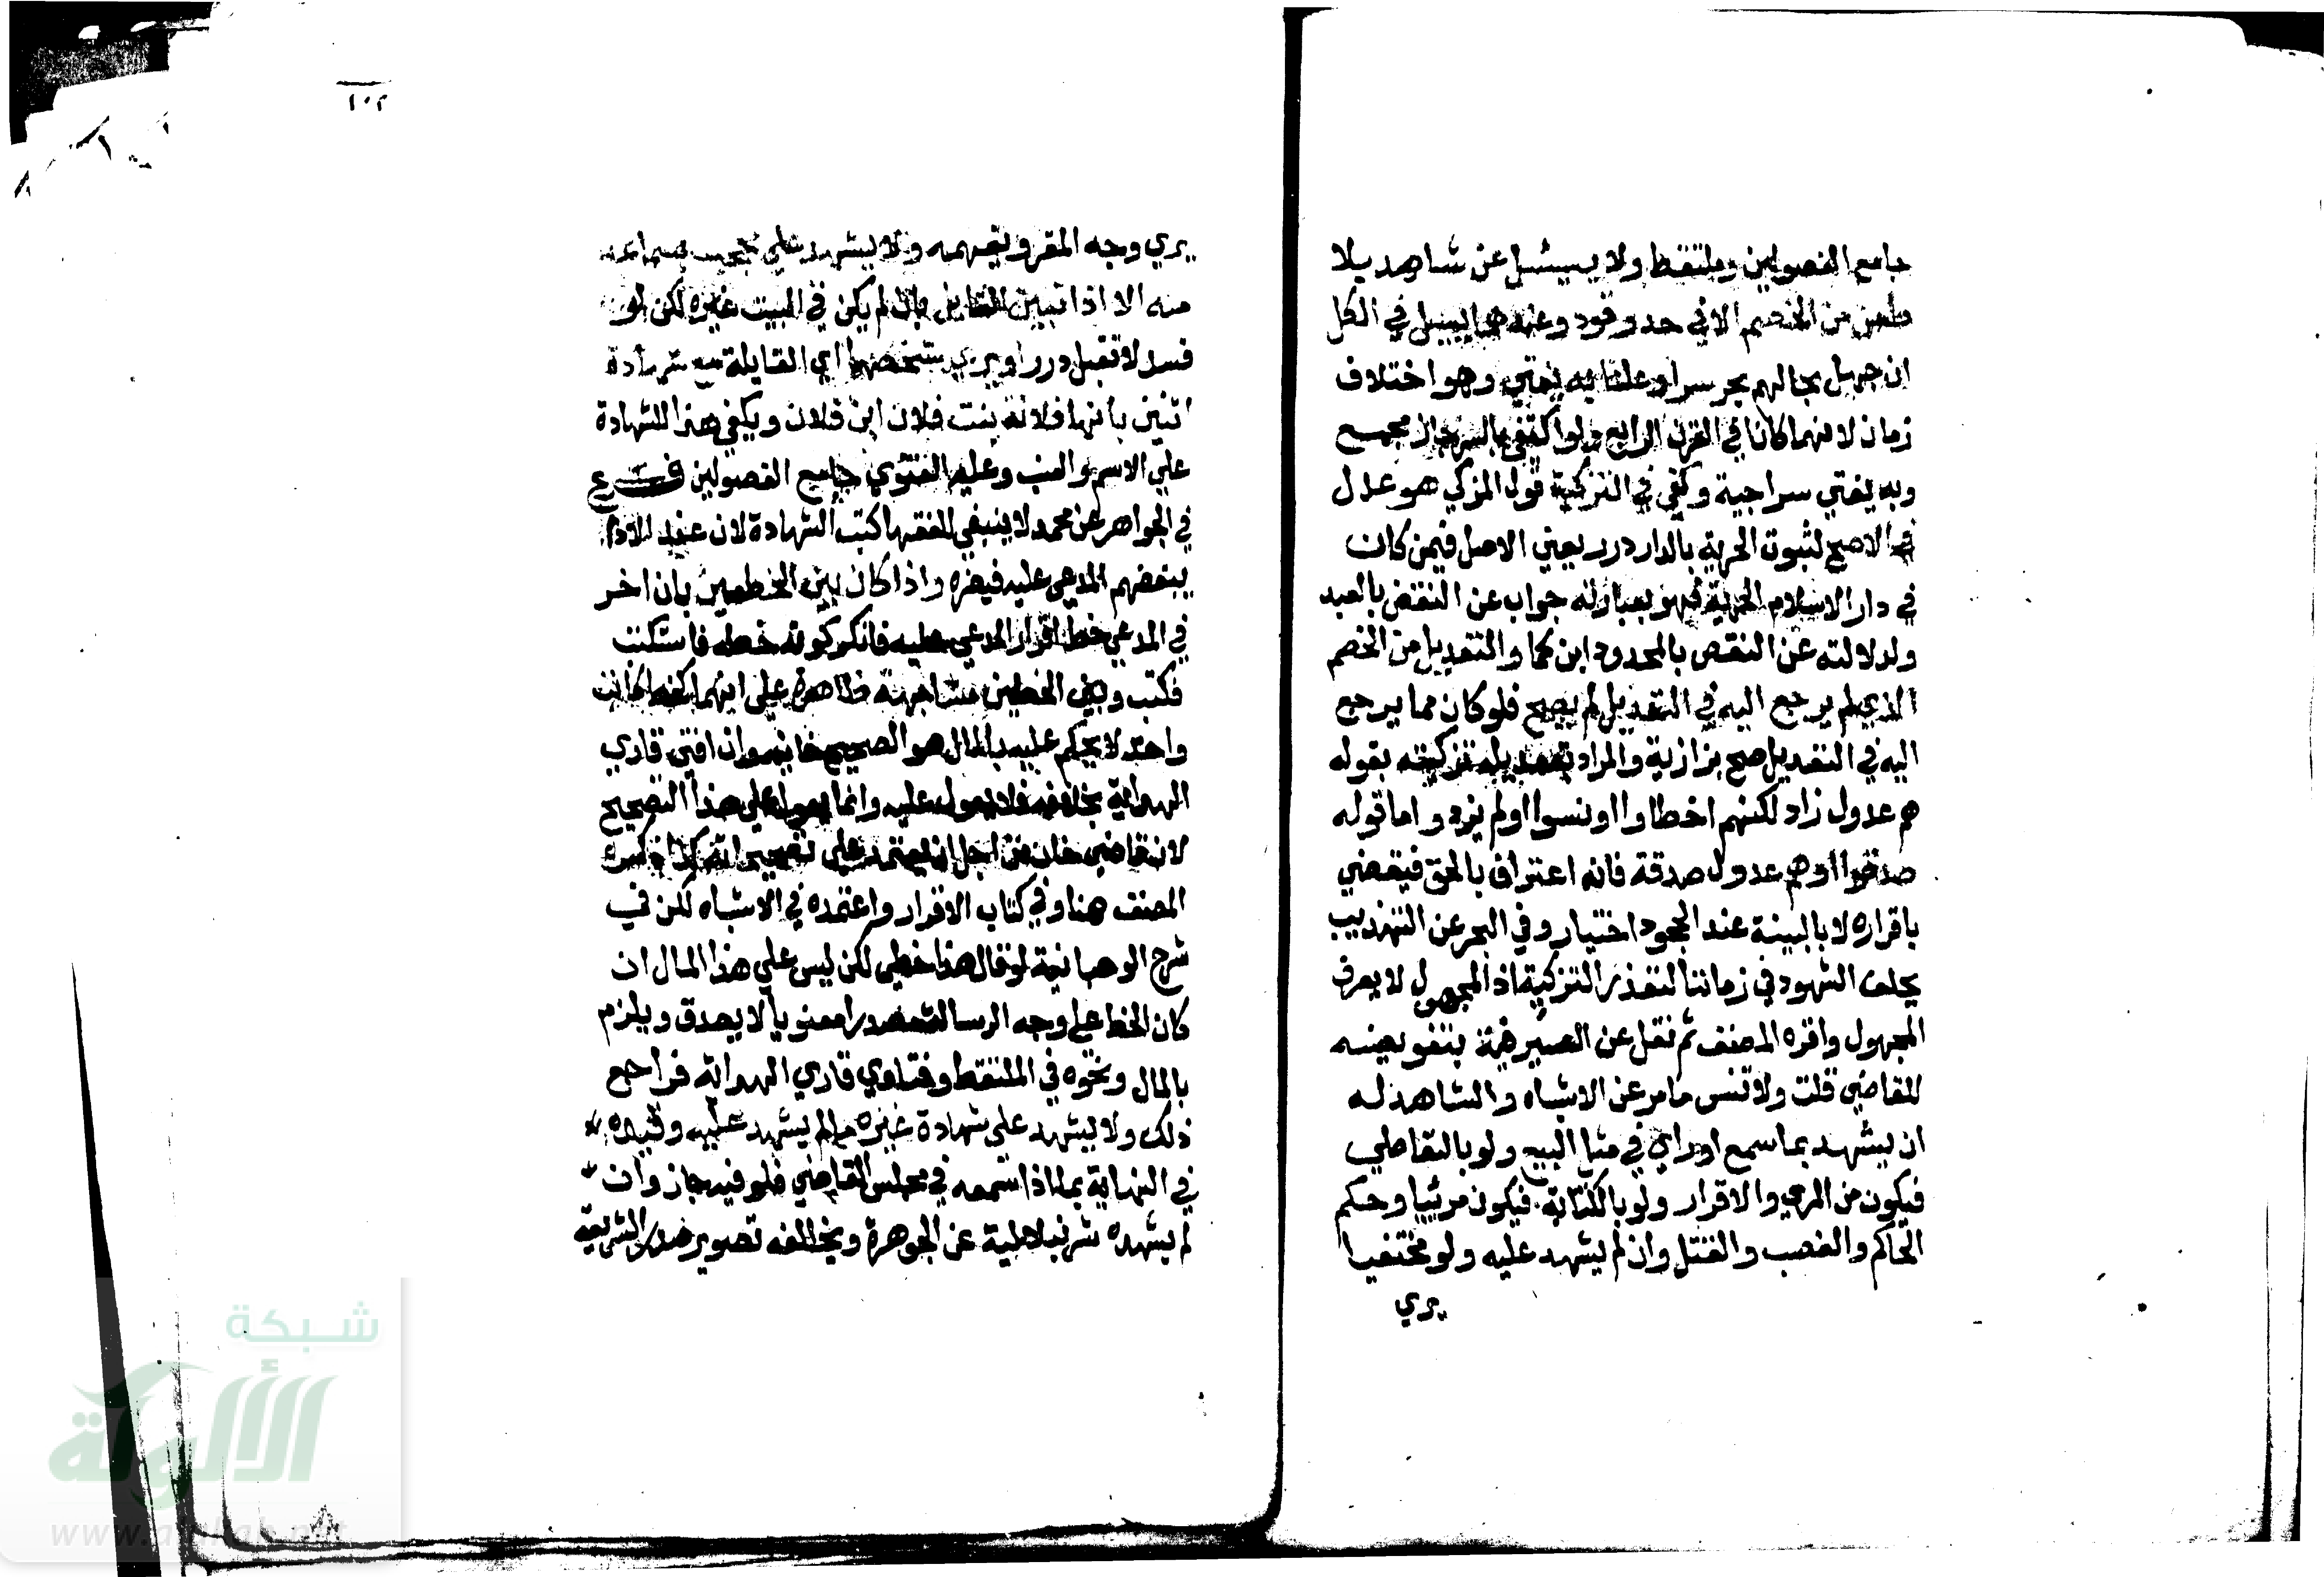 جامع الفصولين وملتقط ولا يسيئل عن شاهد بلا
طعن من الخصم الا في حد وقود وعندهما يسيل في الكل
ان جهل بحالهم بحر سرا وعلنا به يفتي وهو اختلاف
زمان لانهما كانا في القرن الرابع ولو اكتفي بالسر جاز مجمع
وبه يفتي سراجية وكفي في التزكية قول المزكي هو عدل
في الاصح لثبوت الحرية بالدار درر يعني الاصل فيمن كان
في دار الاسلام الحرية فهو بعبارته جواب عن النقض بالعبد
ولدلالته عن النقض بالمحدود ابن كما والتعديل من الخصم
الذي لم يرجع اليه في التعديل لم يصح فلو كان مما يرجع
اليه في التعديل صح بزازية والمراد بتعديله تزكيته بقوله
هم عدول زاد لكنهم اخطاوا او نسوا اولم يزد واما قوله
صدقوا او هم عدول صدقة فانه اعتراف بالحق فيقضي
باقراره لا بالبينة عند الجحود اختيار وفي البحر عن التهذيب
يحلف الشهود في زماننا لتعذر التزكية اذ المجهول لا يعرف
المجهول واقره المصنف ثم نقل عن الصيرفية بتفويضه
للقاضي قلت ولا تنس ما مر عن الاشباه والشاهد له
ان يشهد بما سمع او راي في مثل البيع ولو بالتعاطي
فيكون من المري والاقرار ولو بالكتابة فيكون مرئيا وحكم
الحاكم والغصب والقتل وان لم يشهد عليه ولو مختفيا
يري
١٠٢
يري وجه المقر ويفهمه ولا يشهد علي محجب بسماعه
منه الا اذا تبين القايل بان لم يكن في البيت غيره لكن لو
فسر لا تقبل درر او يري شخصها اي القايلة مع شهادة
اثنين بانها فلانة بنت فلان ابن فلان ويكفي هذا للشهادة
علي الاسم والنسب وعليه الفتوي جامع الفصولين فرع
في الجواهر عن محمد لا ينبغي للفقها كتب الشهادة لان عند الادا
يبغضهم المدعي عليه فيضره واذا كان بين الخطين بان اخر
في المدعي خط اقرار المدعي عليه فانكر كونه خطه فاستكتب
فكتب وبين الخطين مشابهة ظاهرة علي انهما كخط كاتب
واحد لا يحكم عليه بالمال هو الصحيح خانية وان افتي قاري
الهداية بخلافه فلا يعول عليه وانما يعول علي هذا التصحيح
لان قاضي خان من اجل من يعتمد علي تصحيحاته كذا ذكره
المصنف هنا وفي كتاب الاقرار واعتمده في الاشباه لكن في
شرح الوهبانية لو قال هذا خطي لكن ليس علي هذا المال ان
كان الخط علي وجه الرسالة مصدرا معنويا لا يصدق ويلزم
بالمال ونحوه في الملتقط وفتاوي قاري الهداية فراجع
ذلك ولا يشهد علي شهادة غيره ما لم يشهد عليه وقيده
في النهاية بما اذا سمعه في غير مجلس القاضي فلو فيه جاز وان
لم يشهده شرنبلالية عن الجوهرة ويخالفه تصوير صدر الشريعة
شبكة
الألوكة
www.alukah.net